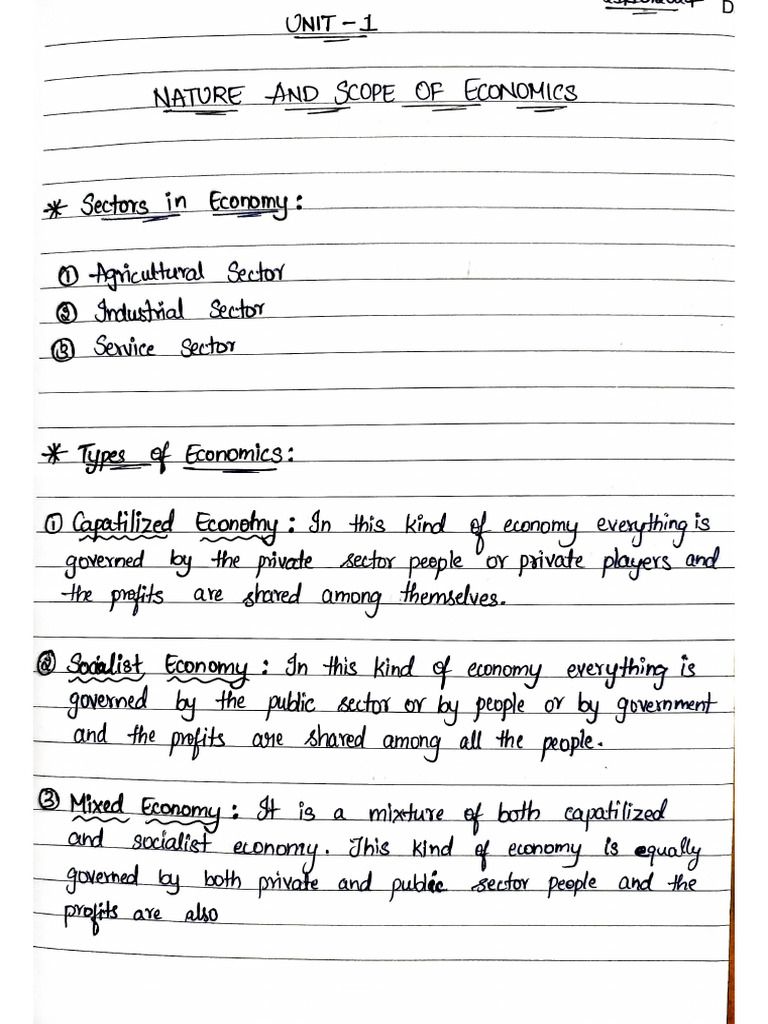 D
UNIT - 1
NATURE AND SCOPE OF ECONOMICS
* Sectors in Economy:
① Agricultural Sector
② Industrial Sector
③ Service Sector
* Types of Economics:
① Capatilized Economy: In this kind of economy everything is
governed by the private sector people or private players and
the profits are shared among themselves.
② Socialist Economy: In this kind of economy everything is
governed by the public sector or by people or by government
and the profits are shared among all the people.
③ Mixed Economy: It is a mixture of both capatilized
and socialist economy. This kind of economy is equally
governed by both private and public sector people and the
profits are also